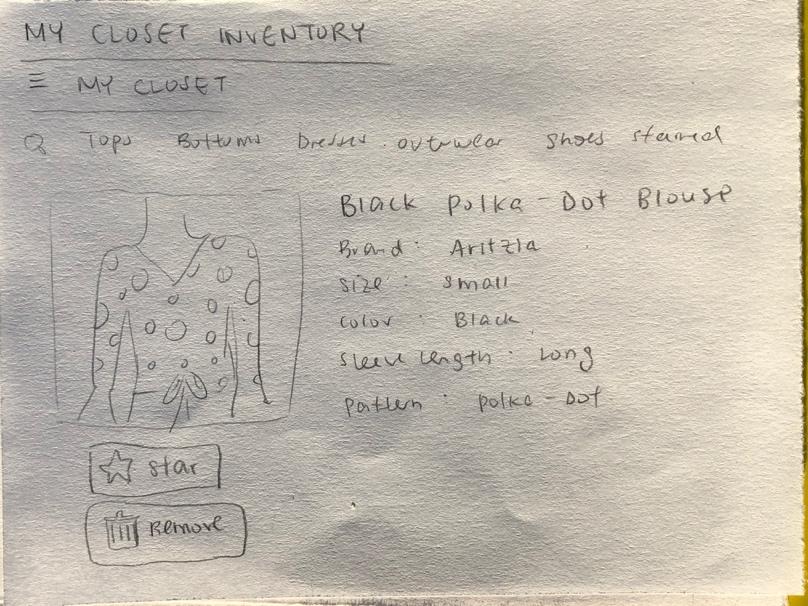 MY CLOSET INVENTORY
MY CLOSET
Tops Bottums Dresses outrwear shoes starred
Black Polka-Dot Blouse
Brand: Aritzla
size: small
color: Black
sleeve length: Long
Pattern: polka-Dot
star
Remove